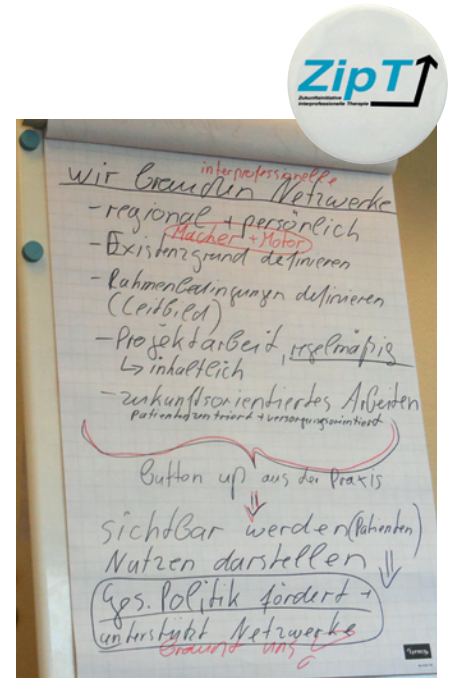 ZipT
Zukunftsinitiative
interprofessionelle Therapie
interprofessionelle
wir brauchen Netzwerke
- regional + persönlich
Macher + Motor
- Existenzgrund definieren
- Rahmenbedingungen definieren
(Leitbild)
- Projektarbeit, regelmäßig
↳ inhaltlich
- zukunftsorientiertes Arbeiten
patientenzentriert + versorgungsorientiert
Button up aus der Praxis
⇓
sichtbar werden (Patienten)
Nutzen darstellen ⇓
Ges. Politik fördert +
unterstützt Netzwerke
braucht uns